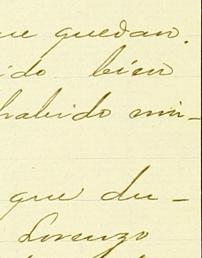 que quedan.
ido bien
habido mi-
que du-
Lorenzo